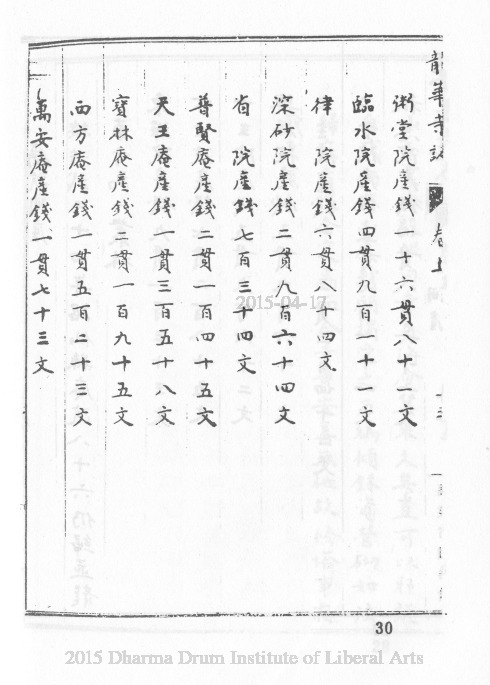 龍華寺誌 卷上
粥堂院產錢一十六貫八十一文
臨水院產錢四貫九百一十一文
律院產錢六貫八十四文
深砂院產錢二貫九百六十四文
省院產錢七百三十四文
普賢庵產錢二貫一百四十五文
天王庵產錢一貫三百五十八文
寶林庵產錢二貫一百九十五文
西方庵產錢一貫五百二十三文
萬安庵產錢一貫七十三文
2015-04-17
30
2015 Dharma Drum Institute of Liberal Arts